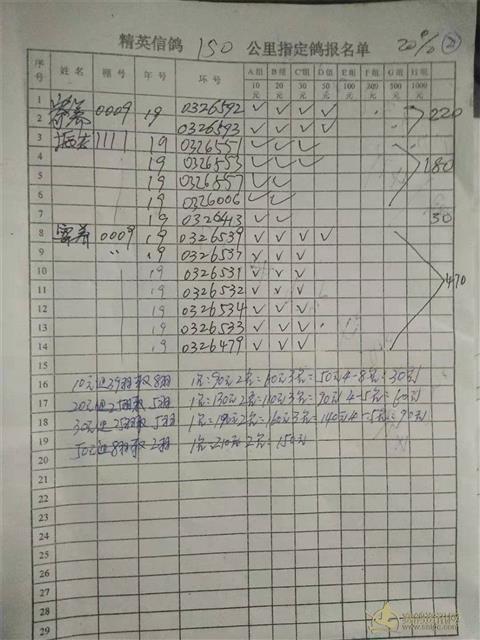 精英信鸽 150 公里指定鸽报名单 20% ②
序号 姓名 棚号 年号 环号 A组 10元 B组 20元 C组 30元 D组 50元 E组 100元 F组 300元 G组 500元 H组 1000元
1 0009 19 0326592 ✓ ✓ ✓ ✓ 220
2 0326593 ✓ ✓ ✓ ✓
3 1111 19 0326551 ✓ ✓ ✓
4 19 0326553 ✓ ✓ ✓ 180
5 19 0326557 ✓ ✓
6 19 0326006 ✓ ✓
7 19 0326443 ✓ ✓ 30
8 0009 19 0326539 ✓ ✓ ✓ ✓
9 〃 19 0326537 ✓ ✓ ✓
10 19 0326531 ✓ ✓ ✓ 470
11 19 0326532 ✓ ✓ ✓
12 19 0326534 ✓ ✓ ✓
13 19 0326533 ✓ ✓ ✓
14 19 0326479 ✓ ✓ ✓
15
16 10元进39羽取8羽 1名=90元2名=60元3名=50元4-8名=30元
17 20元进25羽取5羽 1名=130元2名=110元3名=90元4-5名=60元
18 30元进25羽取5羽 1名=190元2名=160元3名=140元4-5名=90元
19 50元进8羽取2羽 1名=210元2名=150元
20
21
22
23
24
25
26
27
28
29